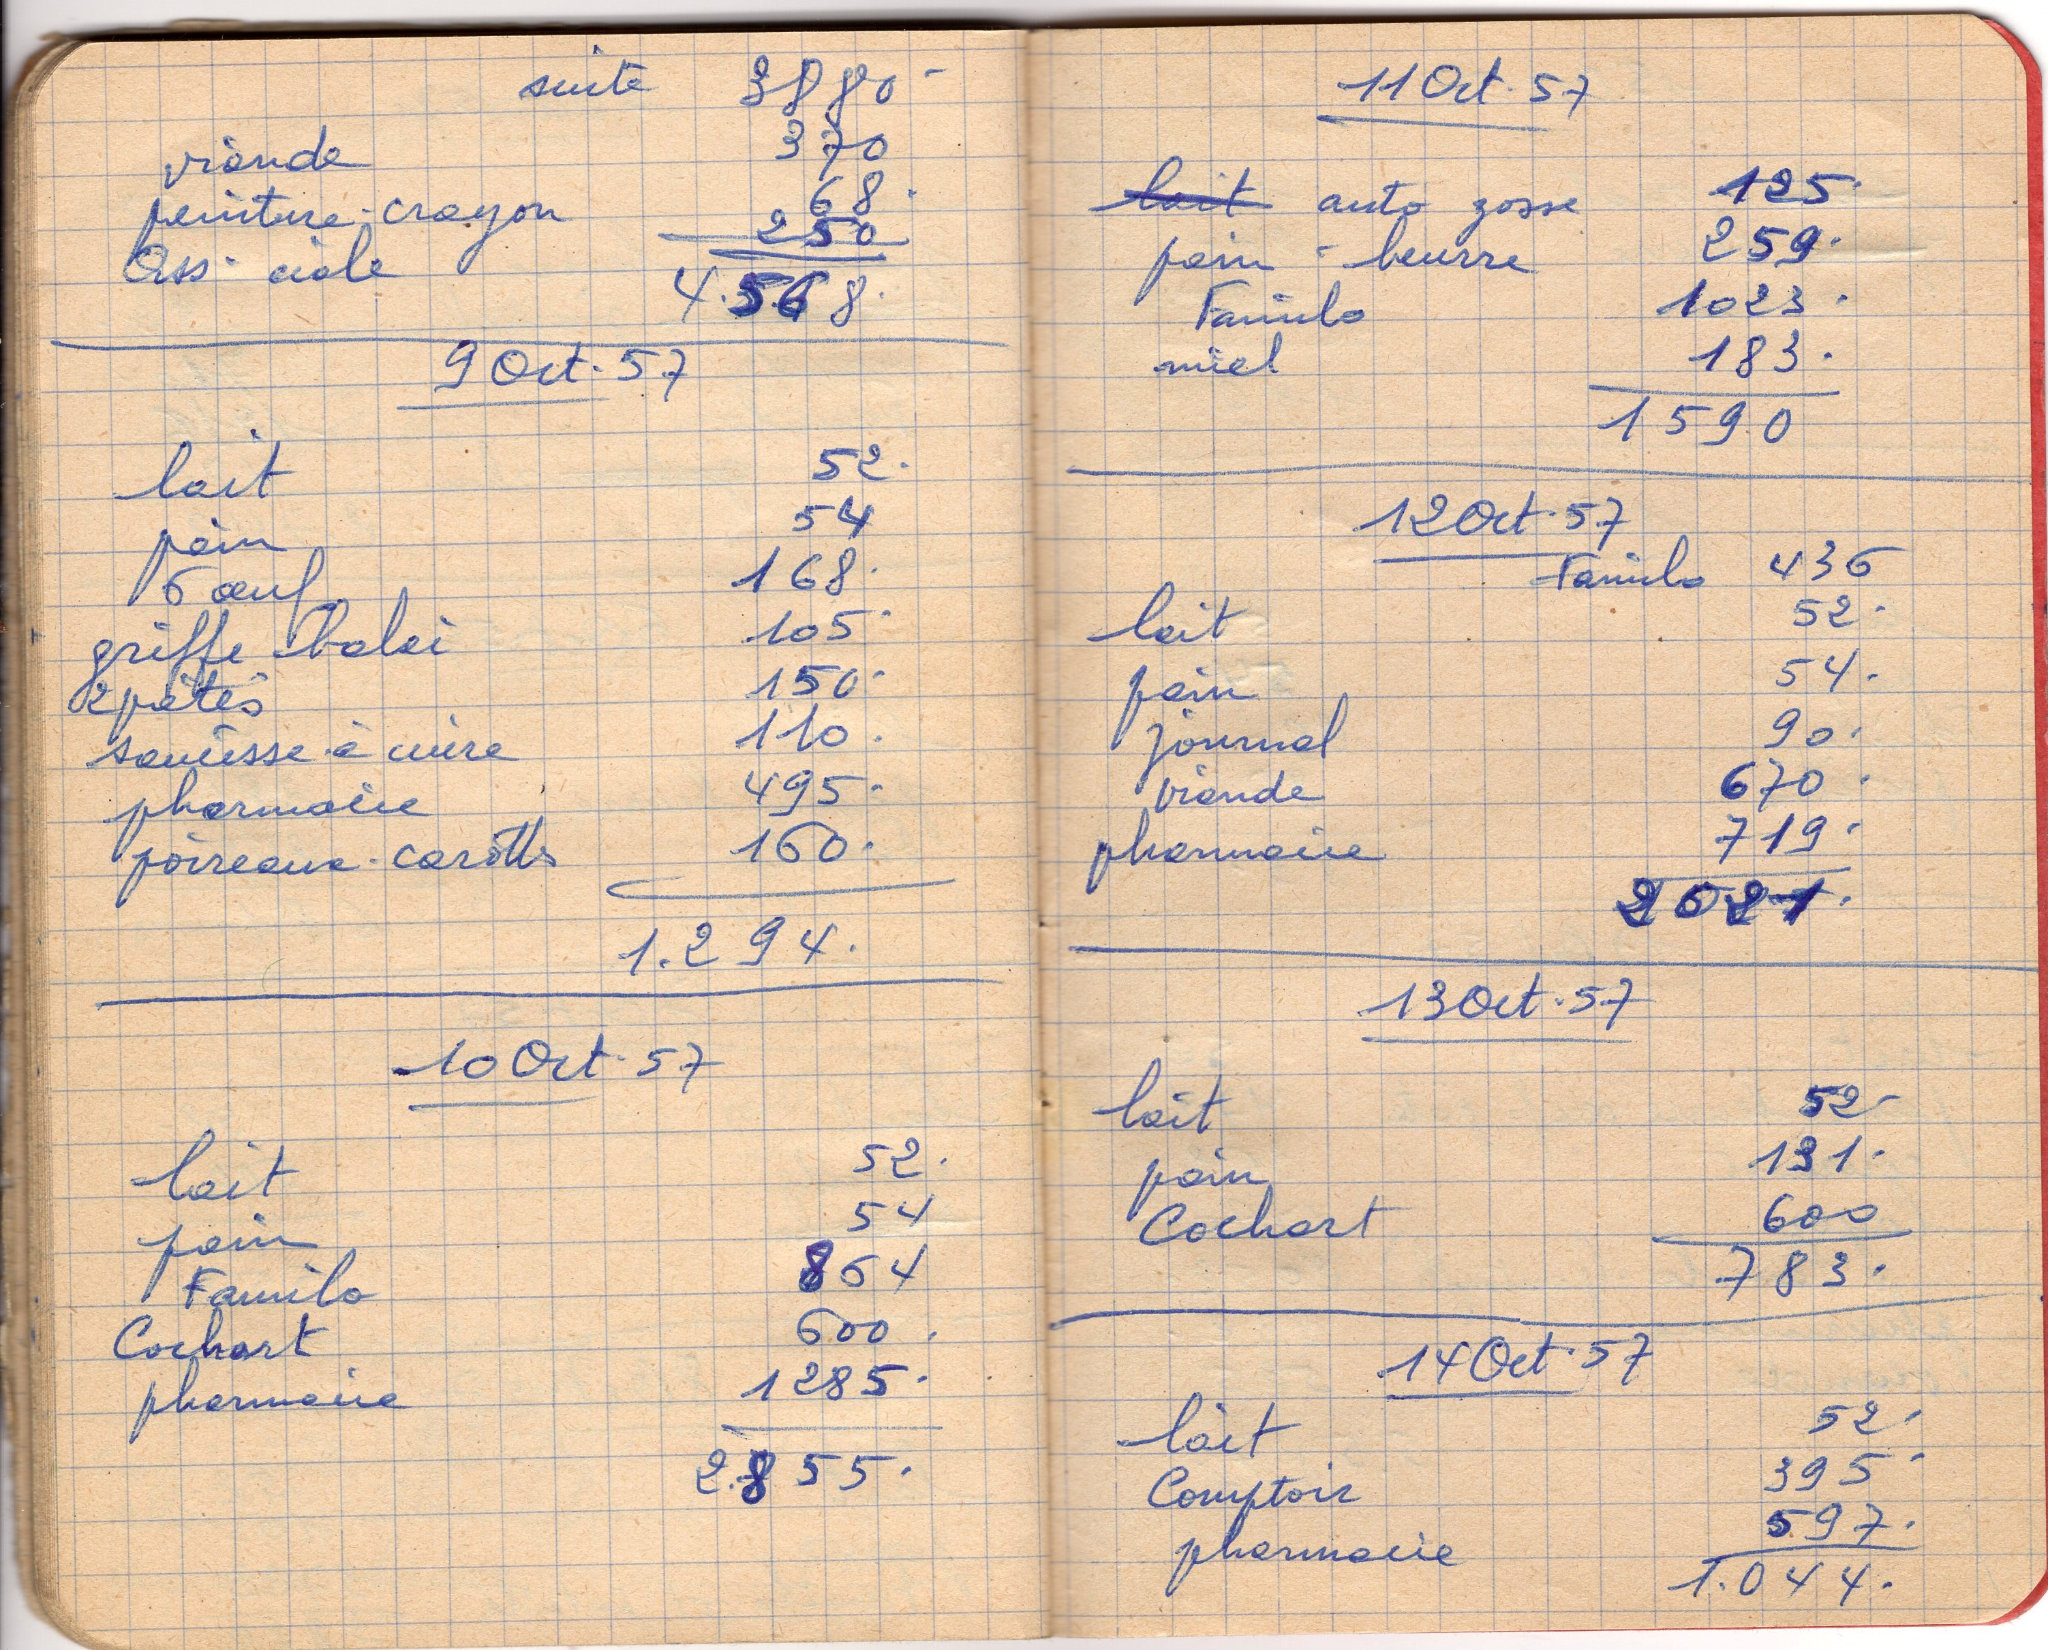 suite 3880
viande 370
peinture-crayon 68.
Ass. ciale 250
4.568.
9 Oct. 57
lait 52.
pain 54
6 œuf 168.
griffe balai 105.
2 pâtés 150.
saucisse à cuire 110.
pharmacie 495.
poireaux-carottes 160.
1.294.
10 Oct. 57
lait 52.
pain 54
Familo 864
Cochart 600.
pharmacie 1285.
2.855.
11 Oct. 57
lait auto gosse 125.
pain - beurre 259.
Familo 1023.
miel 183.
1590
12 Oct. 57
Familo 436
lait 52.
pain 54.
journal 90.
viande 670.
pharmacie 719.
2021.
13 Oct. 57
lait 52
pain 131.
Cochart 600
783.
14 Oct. 57
lait 52.
Comptoir 395
pharmacie 597.
1.044.